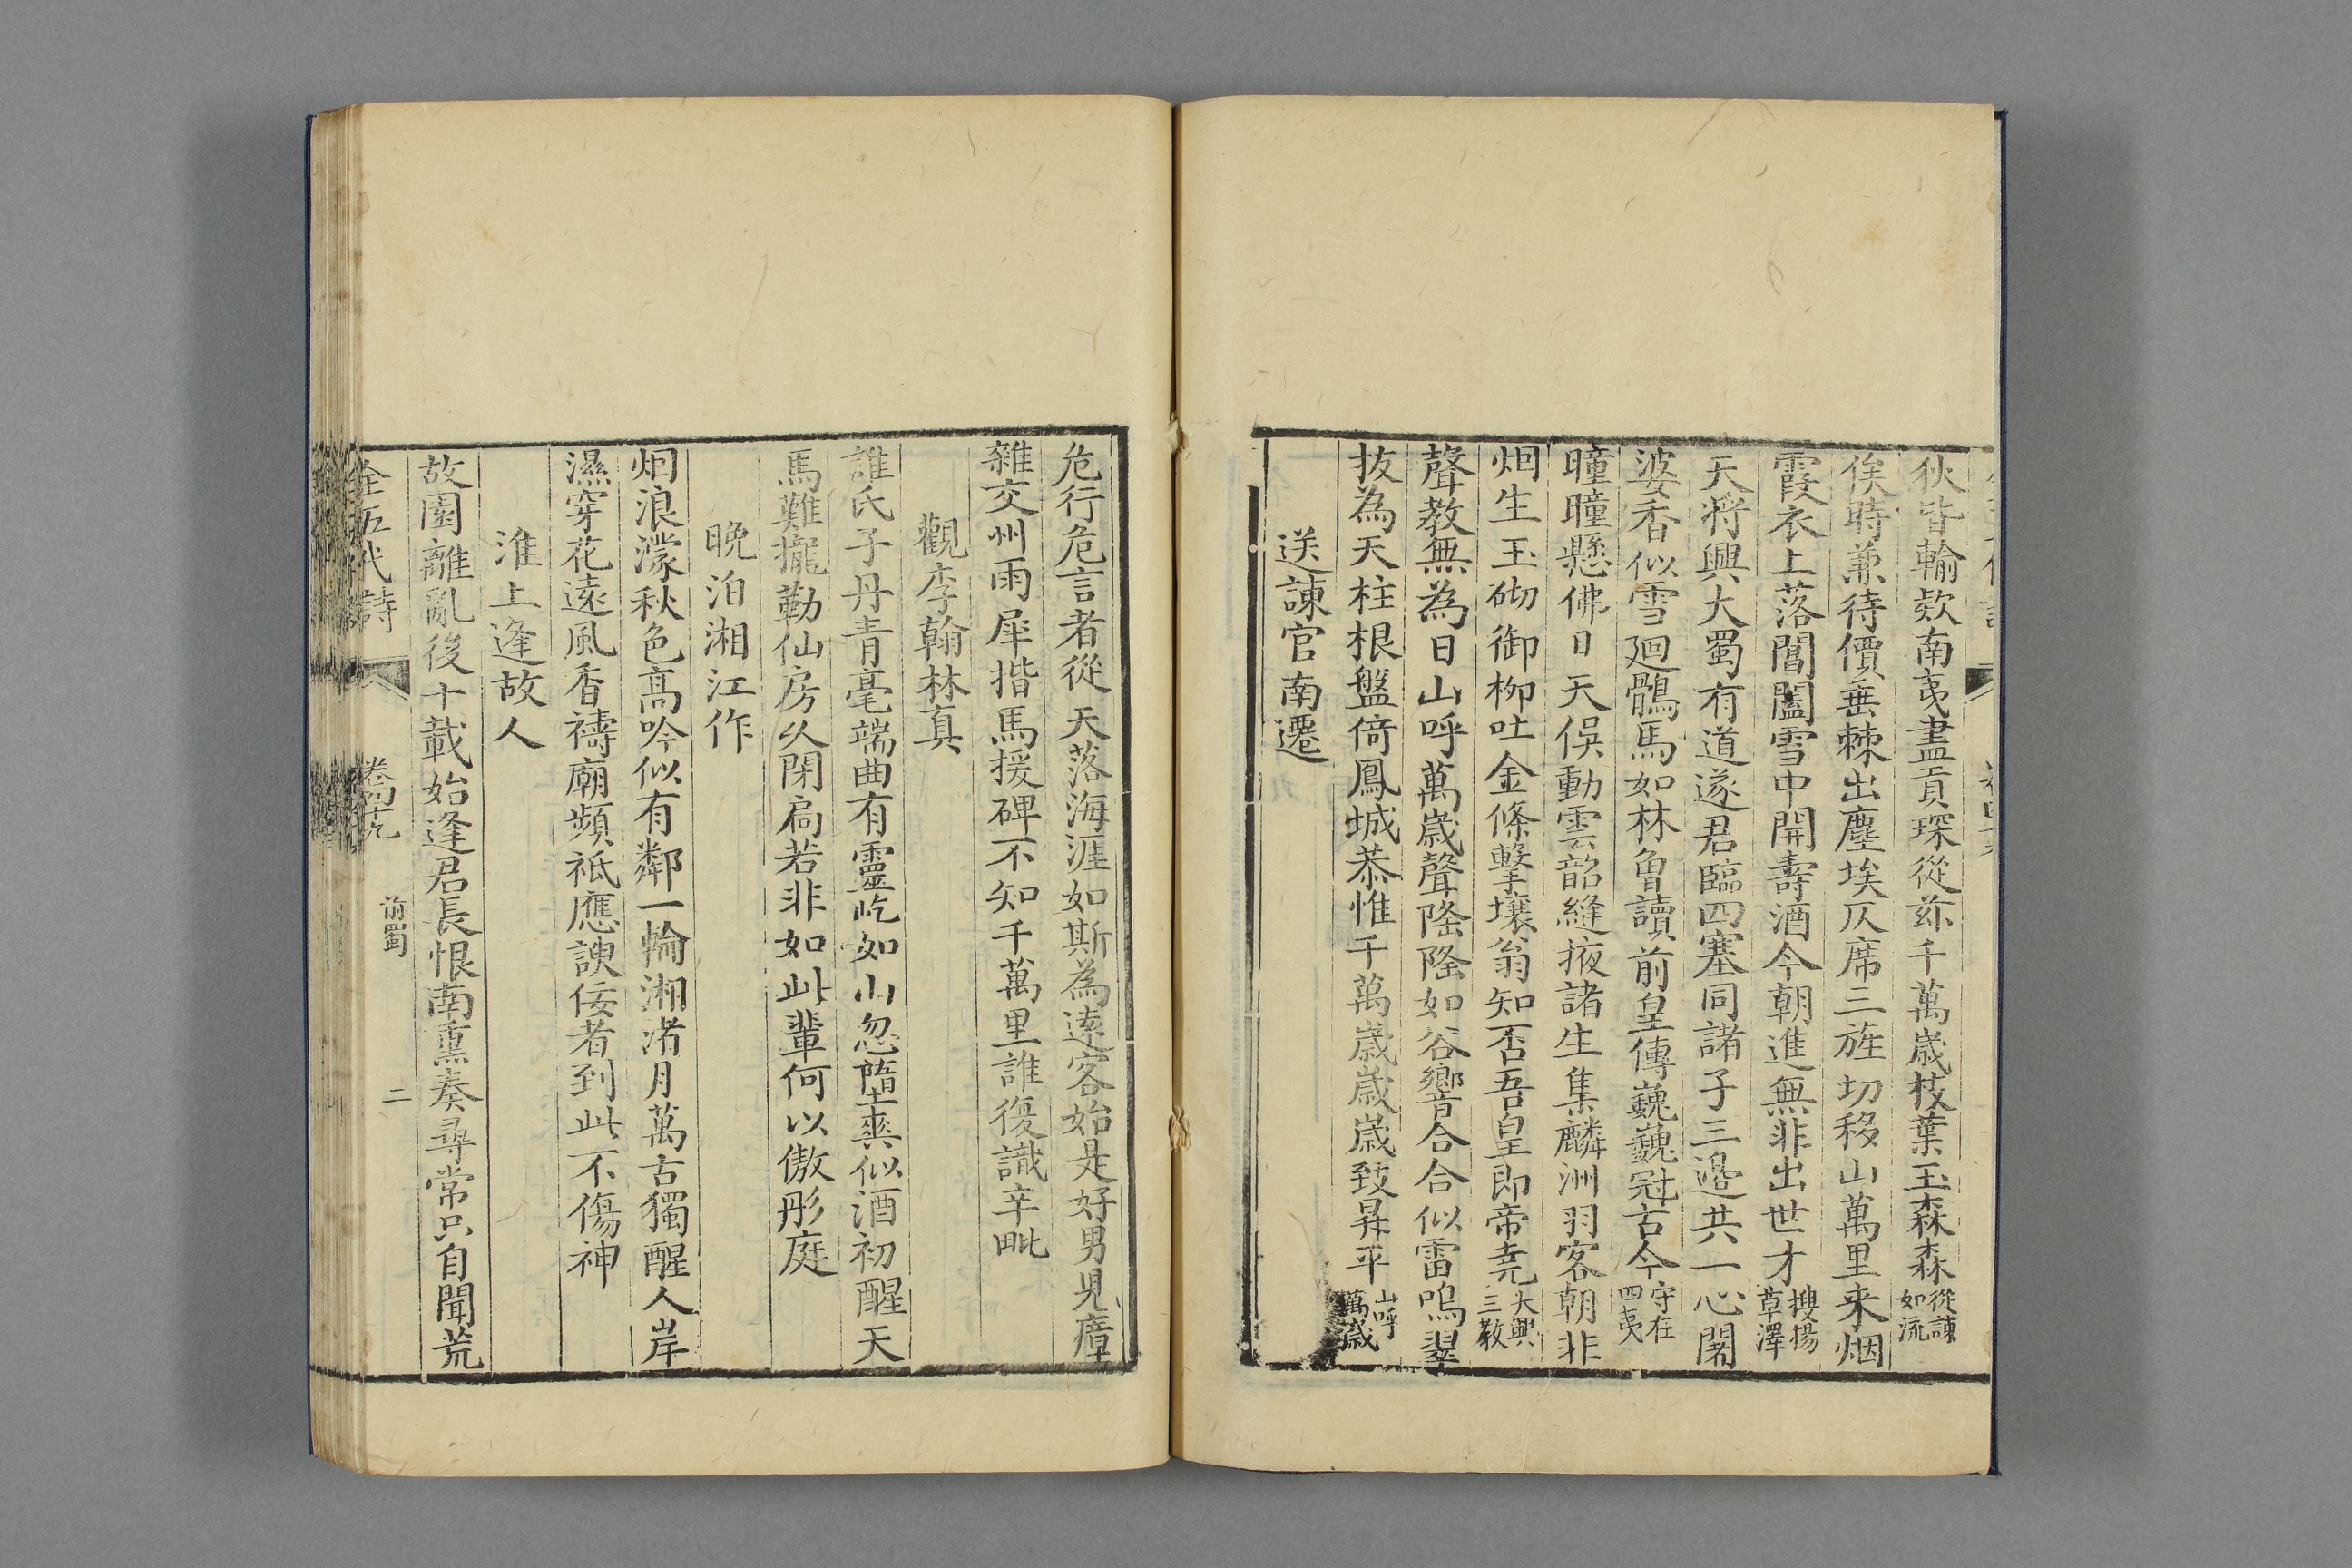 狄皆輸欵南夷盡貢琛從茲千萬歲枝葉玉森森從諫如流
俟時兼待價垂棘出塵埃仄席三旌切移山萬里来烟
霞衣上落閶闔雪中開壽酒今朝進無非出世才搜揚草澤
天將興大蜀有道遂君臨四塞同諸子三邉共一心闍
婆香似雪廻鶻馬如林曾讀前皇傳巍巍冠古今守在四夷
曈曈懸佛日天俣動雲韶縫掖諸生集麟洲羽客朝非
烟生玉砌御栁吐金條擊壤翁知否吾皇即帝堯大興三教
聲教無為日山呼萬歲聲隆隆如谷響合合似雷鳴翠
拔為天柱根盤倚鳳城恭惟千萬歲歲歲致昇平山呼萬歲
送諫官南遷
危行危言者從天落海涯如斯為逺客始是好男児瘴
雜交州雨犀揩馬援碑不知千萬里誰復識辛毗
觀李翰林真
誰氏子丹青毫端曲有靈屹如山忽墮爽似酒初醒天
馬難攏勒仙房久閉扃若非如此輩何以傲彤庭
晚泊湘江作
烟浪濛秋色高吟似有鄰一輪湘渚月萬古獨醒人岸
濕穿花逺風香禱廟頻祗應諛佞者到此不傷神
淮上逢故人
故園離亂後十載始逢君長恨南薰奏尋常只自聞荒
全五代詩 卷四十九 前蜀 二